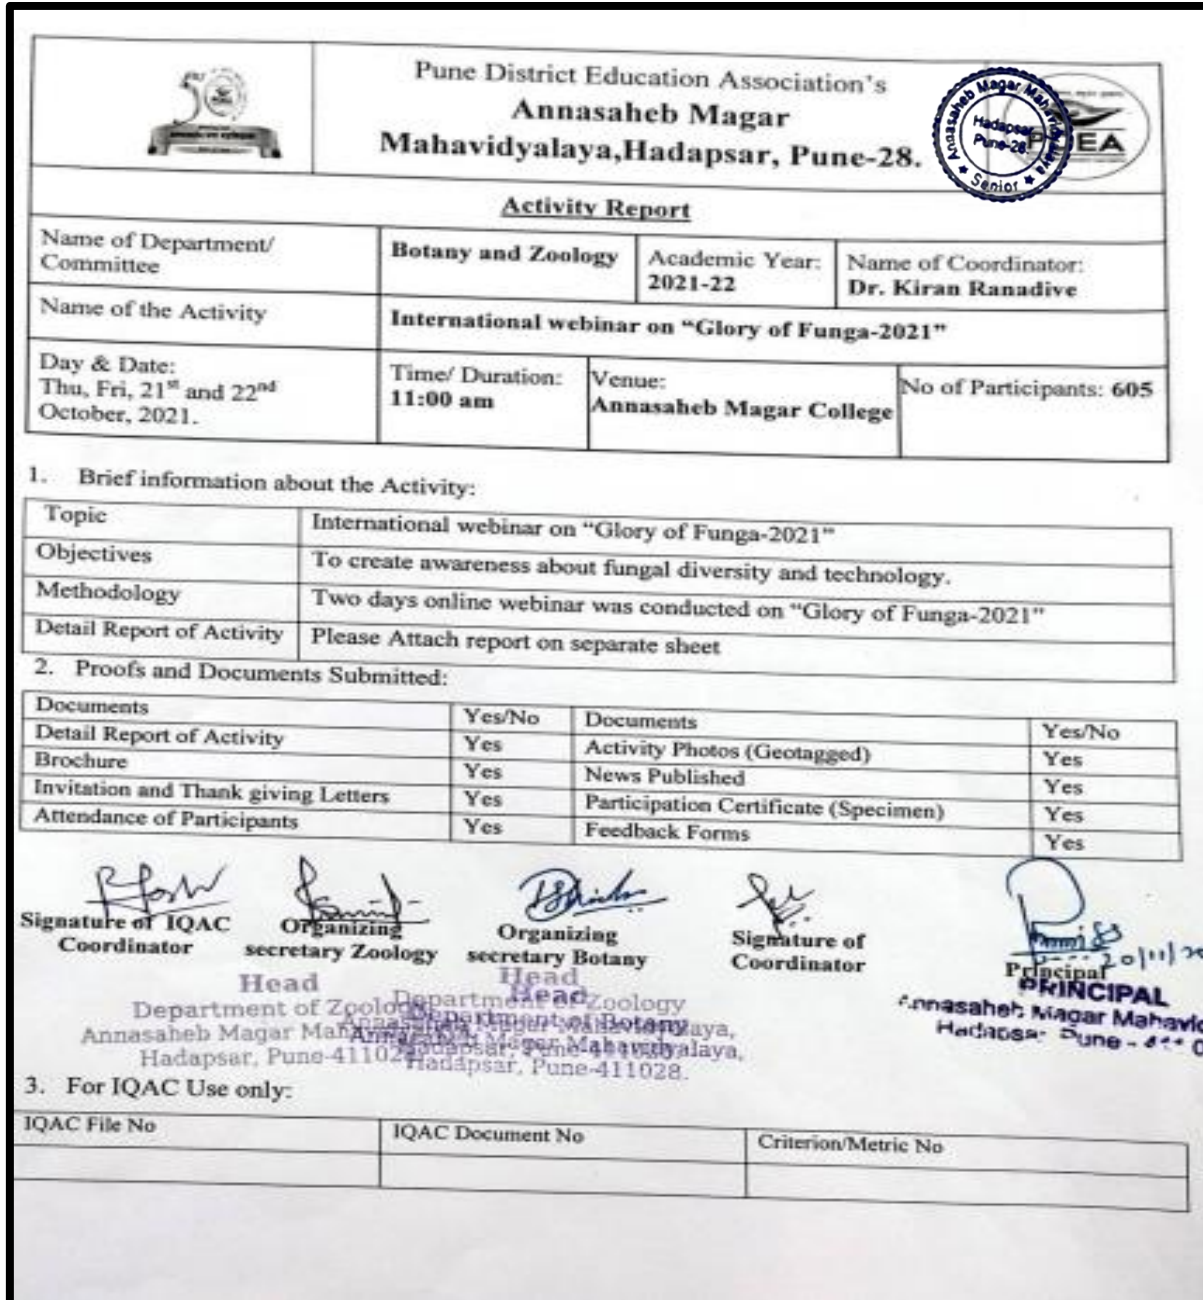 Pune District Education Association's
Annasaheb Magar
Mahavidyalaya,Hadapsar, Pune-28.
Annasaheb Magar Mahavidyalaya
Hadapsar
Pune-28
★ Senior ★
EA
Activity Report
Name of Department/
Committee
Botany and Zoology
Academic Year:
2021-22
Name of Coordinator:
Dr. Kiran Ranadive
Name of the Activity
International webinar on “Glory of Funga-2021”
Day & Date:
Thu, Fri, 21st and 22nd
October, 2021.
Time/ Duration:
11:00 am
Venue:
Annasaheb Magar College
No of Participants: 605
1. Brief information about the Activity:
Topic International webinar on “Glory of Funga-2021”
Objectives To create awareness about fungal diversity and technology.
Methodology Two days online webinar was conducted on “Glory of Funga-2021”
Detail Report of Activity Please Attach report on separate sheet
2. Proofs and Documents Submitted:
Documents Yes/No Documents Yes/No
Detail Report of Activity Yes Activity Photos (Geotagged) Yes
Brochure Yes News Published Yes
Invitation and Thank giving Letters Yes Participation Certificate (Specimen) Yes
Attendance of Participants Yes Feedback Forms Yes
Signature of IQAC
Coordinator
Organizing
secretary Zoology
Organizing
secretary Botany
Signature of
Coordinator
20/11/20
Principal
PRINCIPAL
Annasaheb Magar Mahavid
Hadapsar Pune -
Head
Department of Zoology
Annasaheb Magar
Hadapsar, Pune-411028
Head
Department of Zoology
Head
Department of Botany
Annasaheb Magar Mahavidyalaya,
Hadapsar, Pune-411028.
3. For IQAC Use only:
IQAC File No IQAC Document No Criterion/Metric No